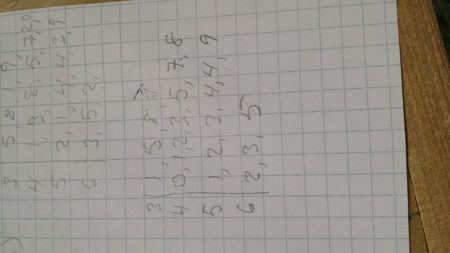 3 5 8 1 9
4 1, 3, 8, 5, 7, 2, 0
5 2, 1, 4, 4, 3, 9
6 3, 5, 2,
3 | 1, 5, 8, 9
4 | 0, 1, 2, 3, 5, 7, 8
5 | 1, 2, 3, 4, 4, 9
6 | 2, 3, 5